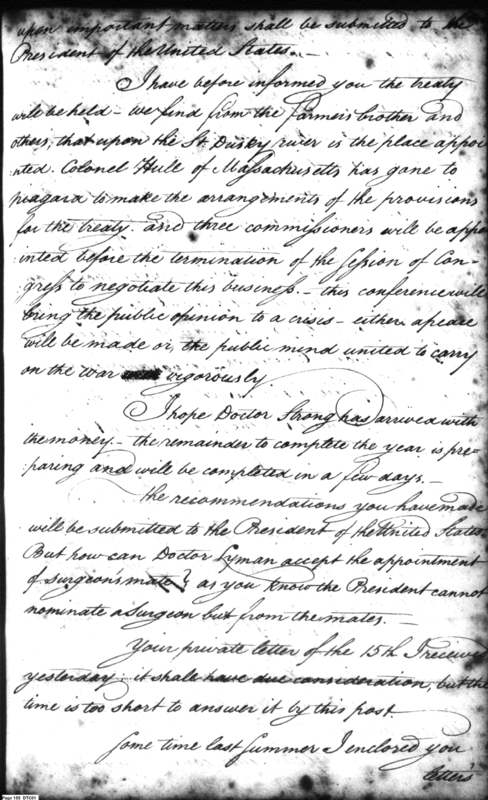 upon important matters shall be submitted to the
President of the United States. —
I have before informed you the treaty
will be held – we find from the Farmers brother and
others, that upon the St. Dusky river is the place appoi
nted. Colonel Hull of Massachusetts has gone to
niagara to make the arrangements of the provisions
for the treaty. and three commissioners will be appo
inted before the termination of the Session of Con-
gress to negotiate this business. – this conference will
bring the public opinion to a crisis – either a peace
will be made or, the public mind united to carry
on the war vigorously.
I hope Doctor Strong has arrived with
the money – the remainder to complete the year is pre=
paring and will be completed in a few days. —
the recommendations you have made
will be submitted to the President of the United States
But how can Doctor Lyman accept the appointment
of surgeon's mate? as you know the President cannot
nominate a surgeon but from the mates. —
Your private letter of the 15th I received
yesterday: it shall have due consideration, but the
time is too short to answer it by this post.
Some time last summer I enclosed you
letters
Page 156 DTC01